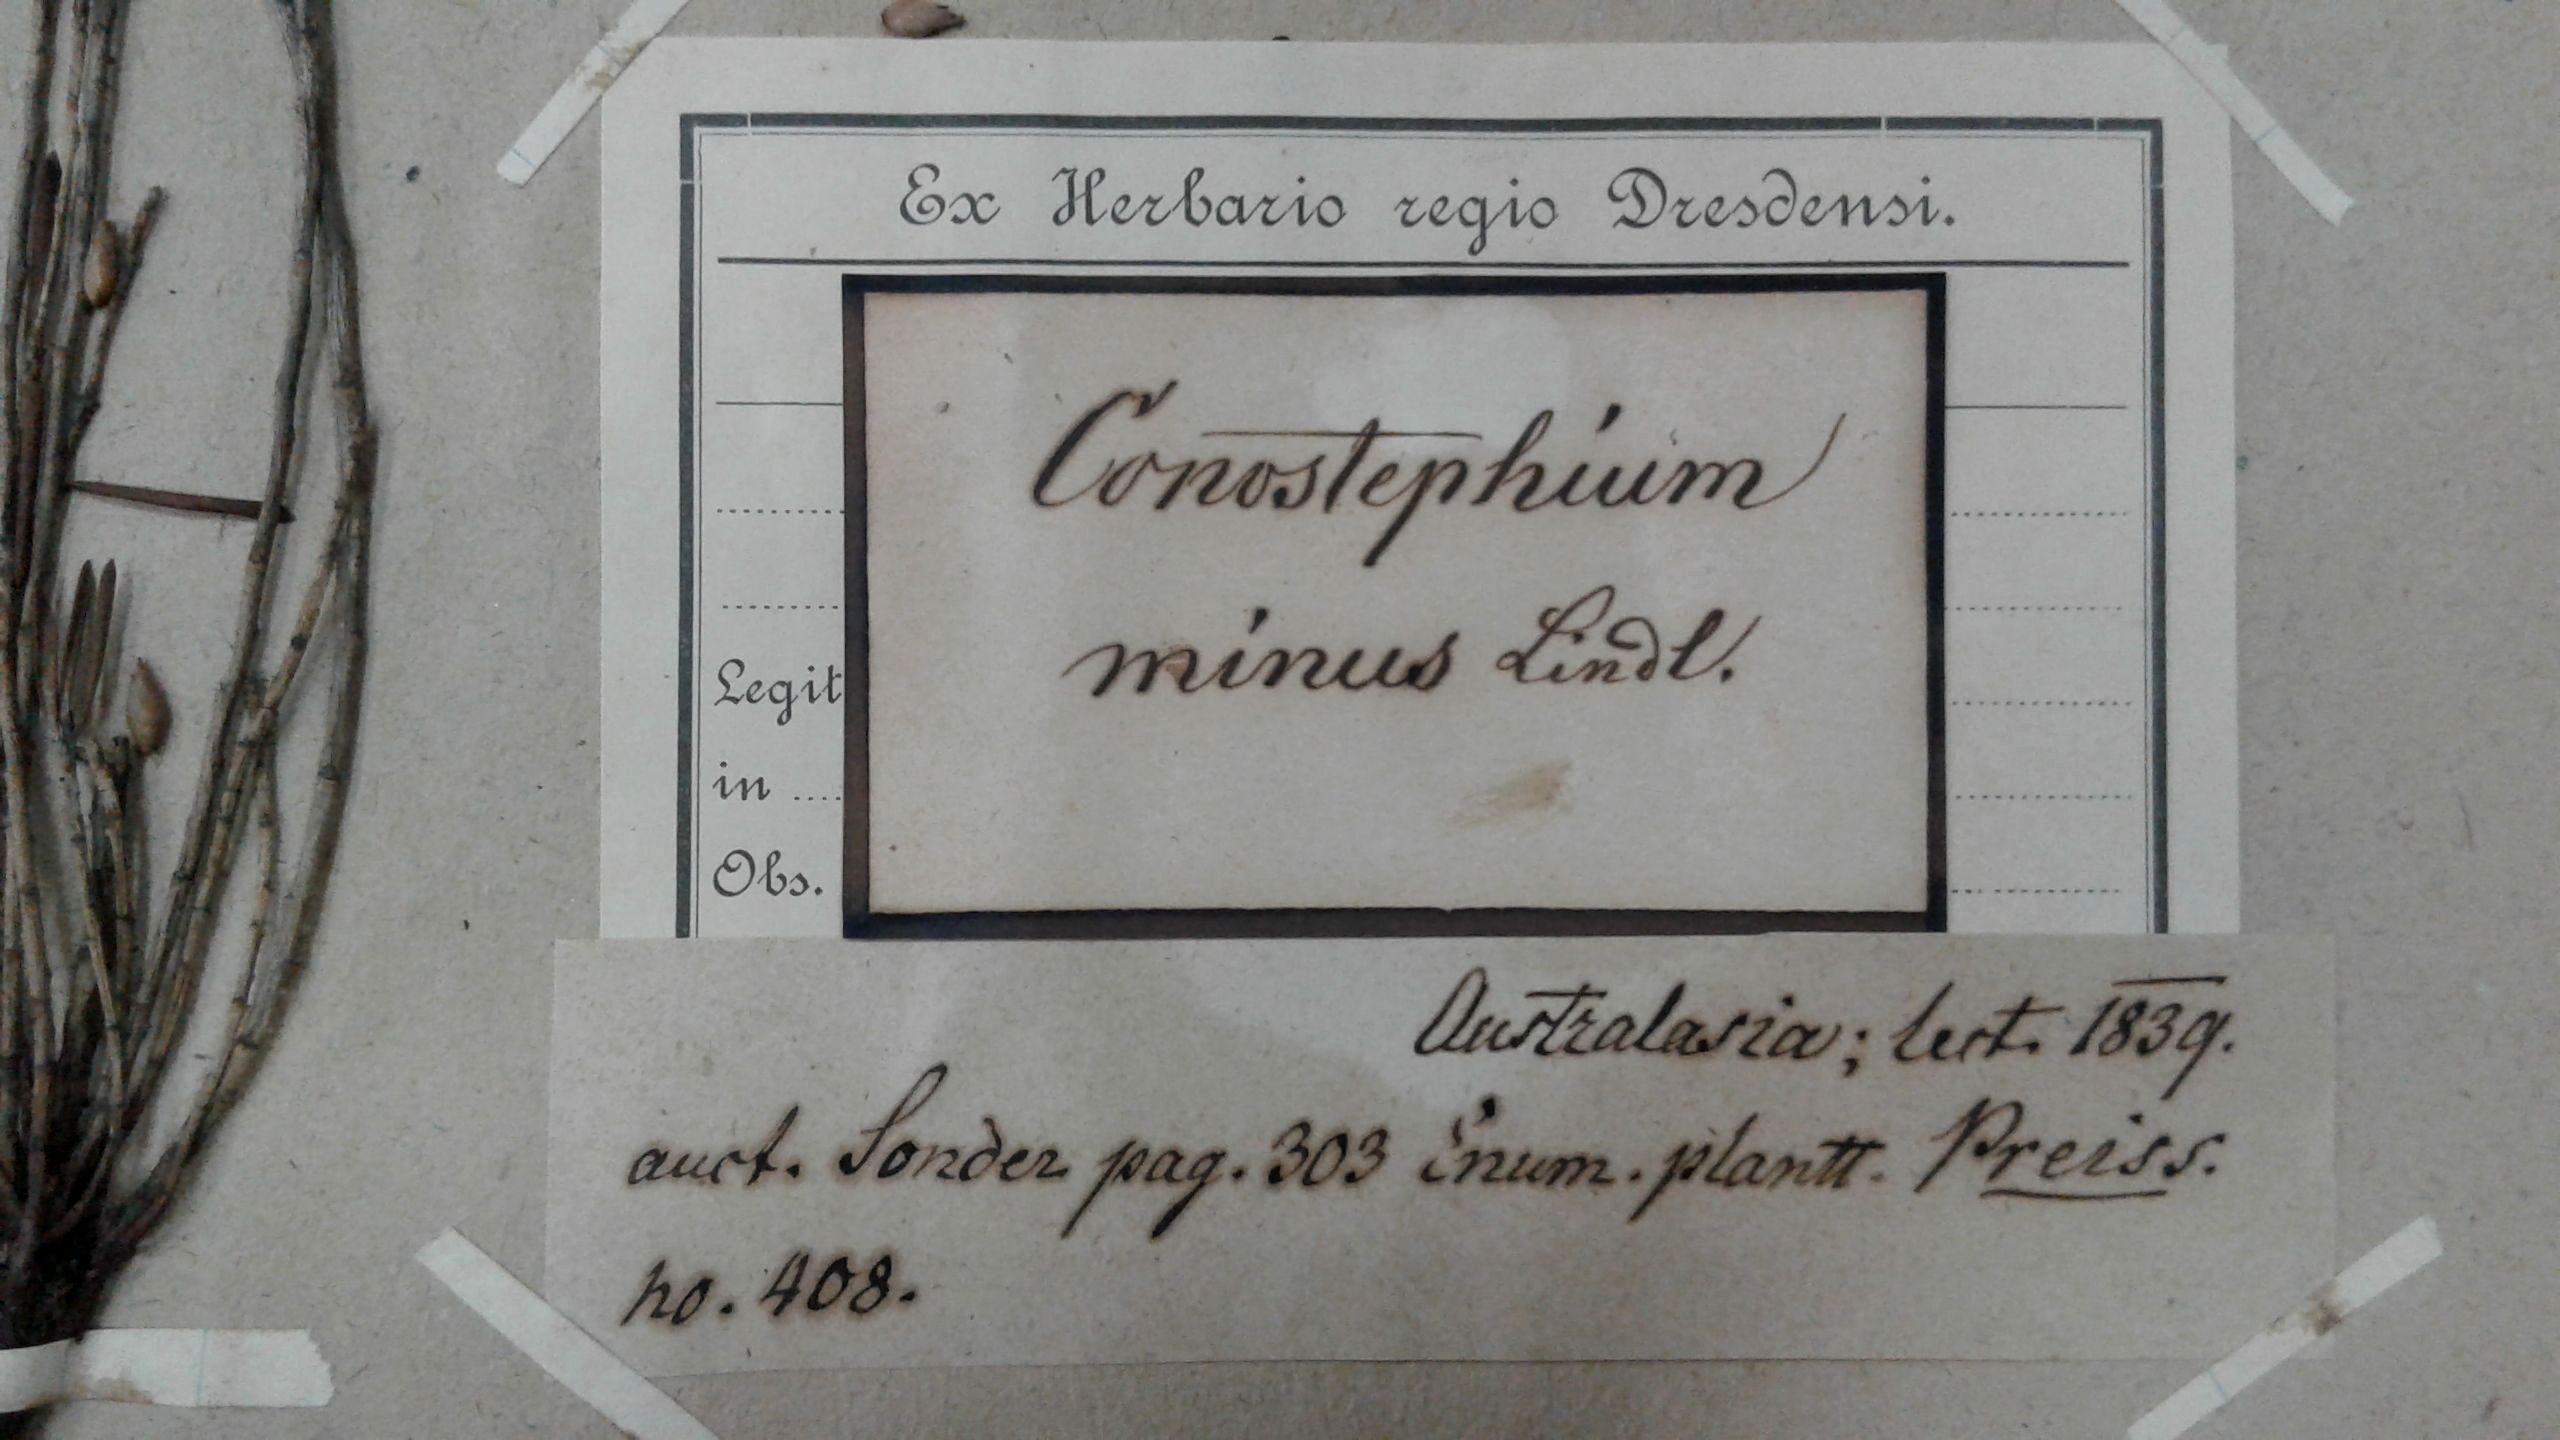 Ex Herbario regio Dresdensi.
Conostephium
minus Lindl.
Legit
in
Obs.
Australasia; lect. 1839.
auct. Sonder pag. 303 Enum. plantt. Preiss.
no. 408.